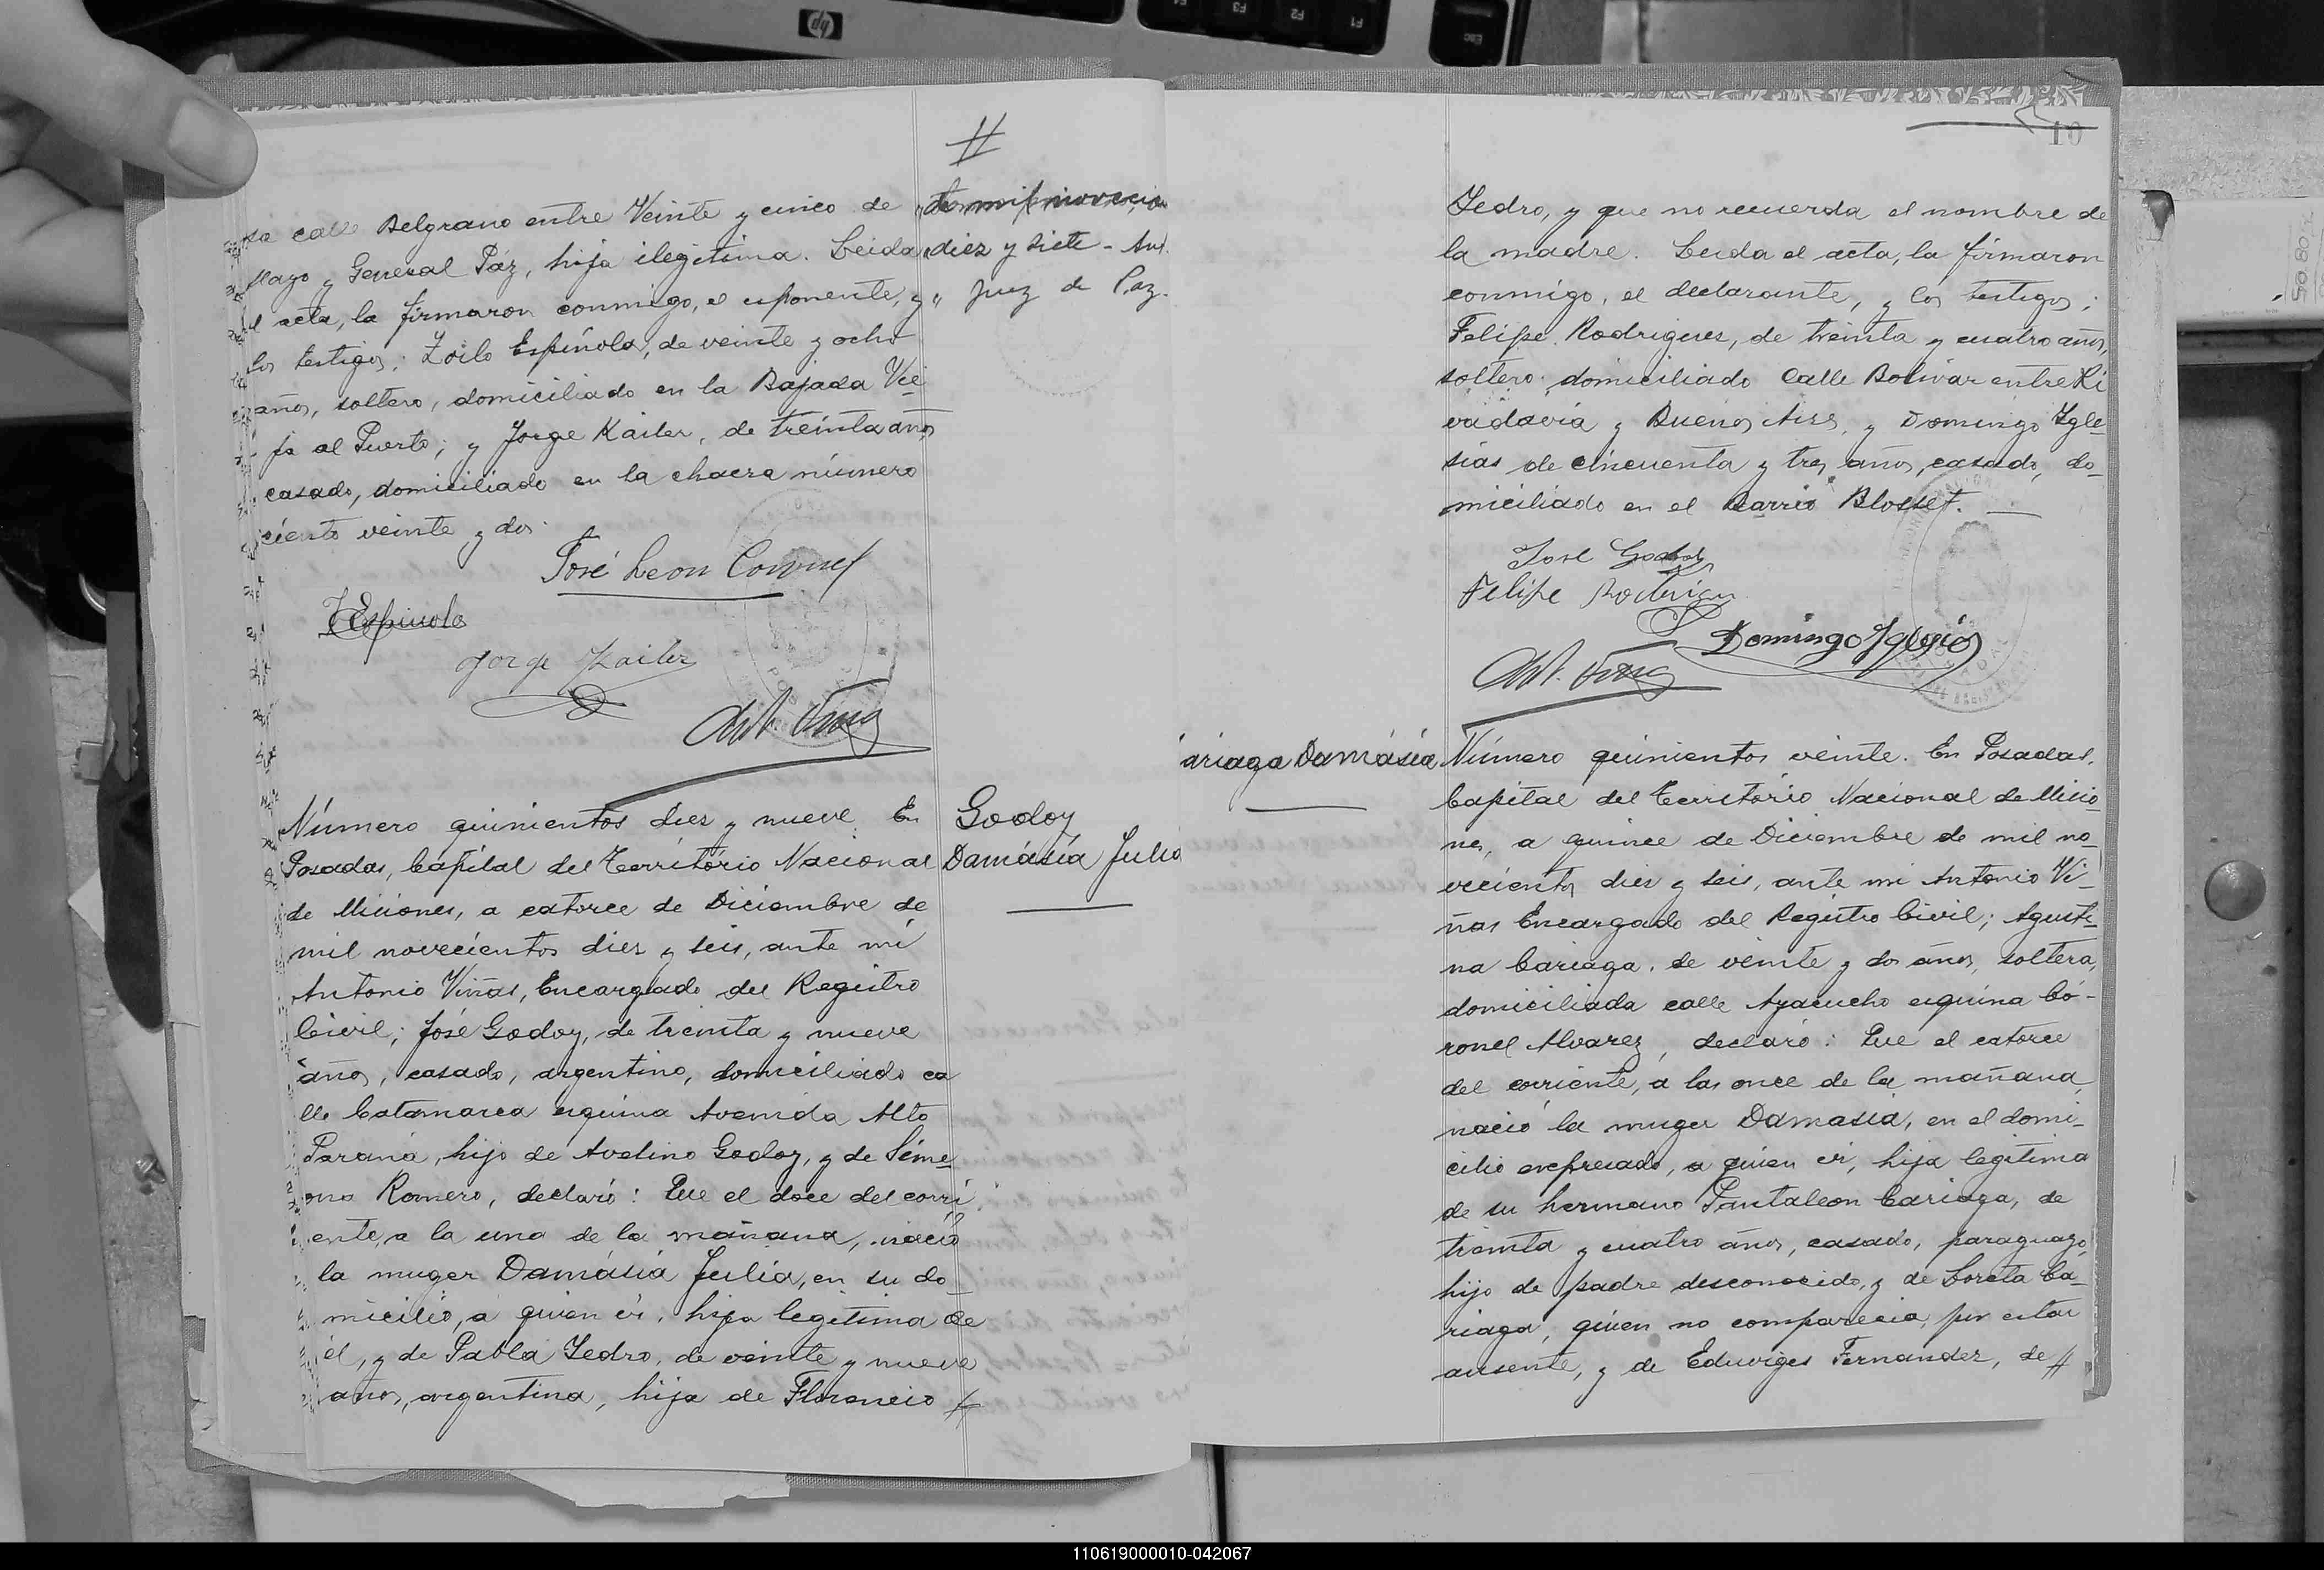 la calle Belgrano entre Veinte y cinco de
Mayo y General Paz, hija ilegitima. Leida
el acta, la firmaron conmigo, el esponente, y
los testigos; Zoilo Espínola, de veinte y ocho
años, soltero, domiciliado en la Bajada Vie
ja al Puerto; y Jorge Kailer, de treinta años
casado, domiciliado en la chacra número
ciento veinte y dos.
José Leon Coronel
Z Espinola
Jorge Kailer
Ant. Vinas
#
diez y siete - Ant.
" Juez de Paz.
Número quinientos diez y nueve. En
Posadas, Capital del Território Nacional
de Misiones, a catorce de Diciembre de
mil novecientos diez y seis, ante mí
Antonio Viñas, Encargado del Registro
Civil; José Godoy, de treinta y nueve
años, casado, argentino, domiciliado ca
lle Catamarca esquina Avenida Alto
Paraná, hijo de Avelino Godoy, y de Sime
ona Romero, declaró: Que el doce del corri
ente, a la una de la mañana, nació
la muger Damásia Julia, en su do
micilio, a quien ví, hija legítima de
él, y de Pabla Yedro, de veinte y nueve
años, argentina, hija de Florencio #
Godoy
Damásia Julia
10
Yedro, y que no recuerda el nombre de
la madre. Leida el acta, la firmaron
conmigo, el declarante, y los testigos;
Felipe Rodrigues, de treinta y cuatro años,
soltero, domiciliado Calle Bolivar entre Ri
vadavia y Buenos Aires, y Domingo Igle-
sias de cincuenta y tres años, casado, do-
miciliado en el Barrio Blosset.
José Godoy
Felipe Rodrigues
Domingo Iglesias
Ant. Vinas
ariaga Damásia
Número quinientos veinte. En Posadas,
Capital del Território Nacional de Misio
nes, a quince de Diciembre de mil no-
vecientos diez y seis, ante mi Antonio Vi-
ñas Encargado del Registro Civil; Agusti-
na Cariaga, de veinte y dos años, soltera,
domiciliada calle Ayacucho esquina Co-
ronel Alvarez, declaró: Que el catorce
del corriente, a las once de la mañana,
nació la muger Damasia, en el domi-
cilio expresado, a quien ví, hija legítima
de su hermano Pantaleon Cariaga, de
treinta y cuatro años, casado, paraguayo,
hijo de padre desconocido, y de Loreta Ca-
riaga, quien no comparecia por estar
ausente, y de Eduviges Fernandez, de #
110619000010-042067